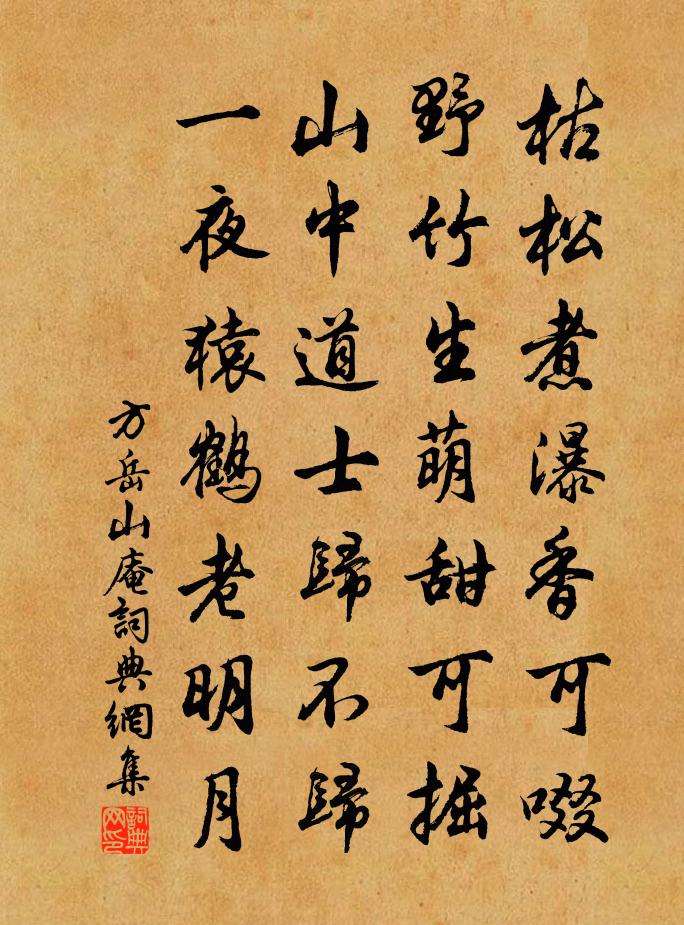 枯松煮瀑香可啜
野竹生萌甜可掘
山中道士歸不歸
一夜猿鶴老明月
方岳山庵詞典網集
詞典网印